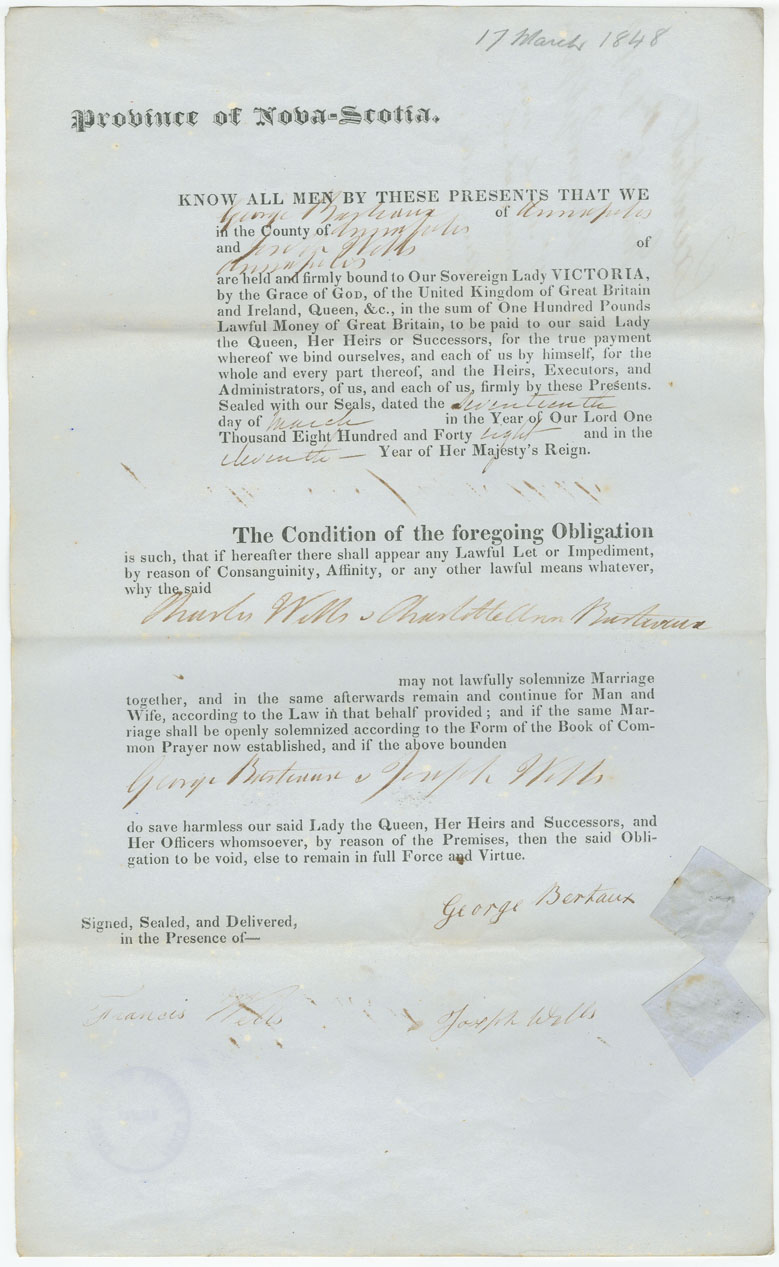 17 March 1848
Province of Nova-Scotia.
KNOW ALL MEN BY THESE PRESENTS THAT WE
George Barteaux of Annapolis
in the County of Annapolis
and Joseph Wells of
Annapolis
are held and firmly bound to Our Sovereign Lady VICTORIA,
by the Grace of GOD, of the United Kingdom of Great Britain
and Ireland, Queen, &c., in the sum of One Hundred Pounds
Lawful Money of Great Britain, to be paid to our said Lady
the Queen, Her Heirs or Successors, for the true payment
whereof we bind ourselves, and each of us by himself, for the
whole and every part thereof, and the Heirs, Executors, and
Administrators, of us, and each of us, firmly by these Presents.
Sealed with our Seals, dated the Seventeenth
day of March in the Year of Our Lord One
Thousand Eight Hundred and Forty eight and in the
eleventh — Year of Her Majesty's Reign.
The Condition of the foregoing Obligation
is such, that if hereafter there shall appear any Lawful Let or Impediment,
by reason of Consanguinity, Affinity, or any other lawful means whatever,
why the said
Charles Wells & Charlotte Ann Barteaux
may not lawfully solemnize Marriage
together, and in the same afterwards remain and continue for Man and
Wife, according to the Law in that behalf provided; and if the same Mar-
riage shall be openly solemnized according to the Form of the Book of Com-
mon Prayer now established, and if the above bounden
George Barteaux & Joseph Wells
do save harmless our said Lady the Queen, Her Heirs and Successors, and
Her Officers whomsoever, by reason of the Premises, then the said Obli-
gation to be void, else to remain in full Force and Virtue.
George Bertaux
Signed, Sealed, and Delivered,
in the Presence of—
Francis Wells
Joseph Wells